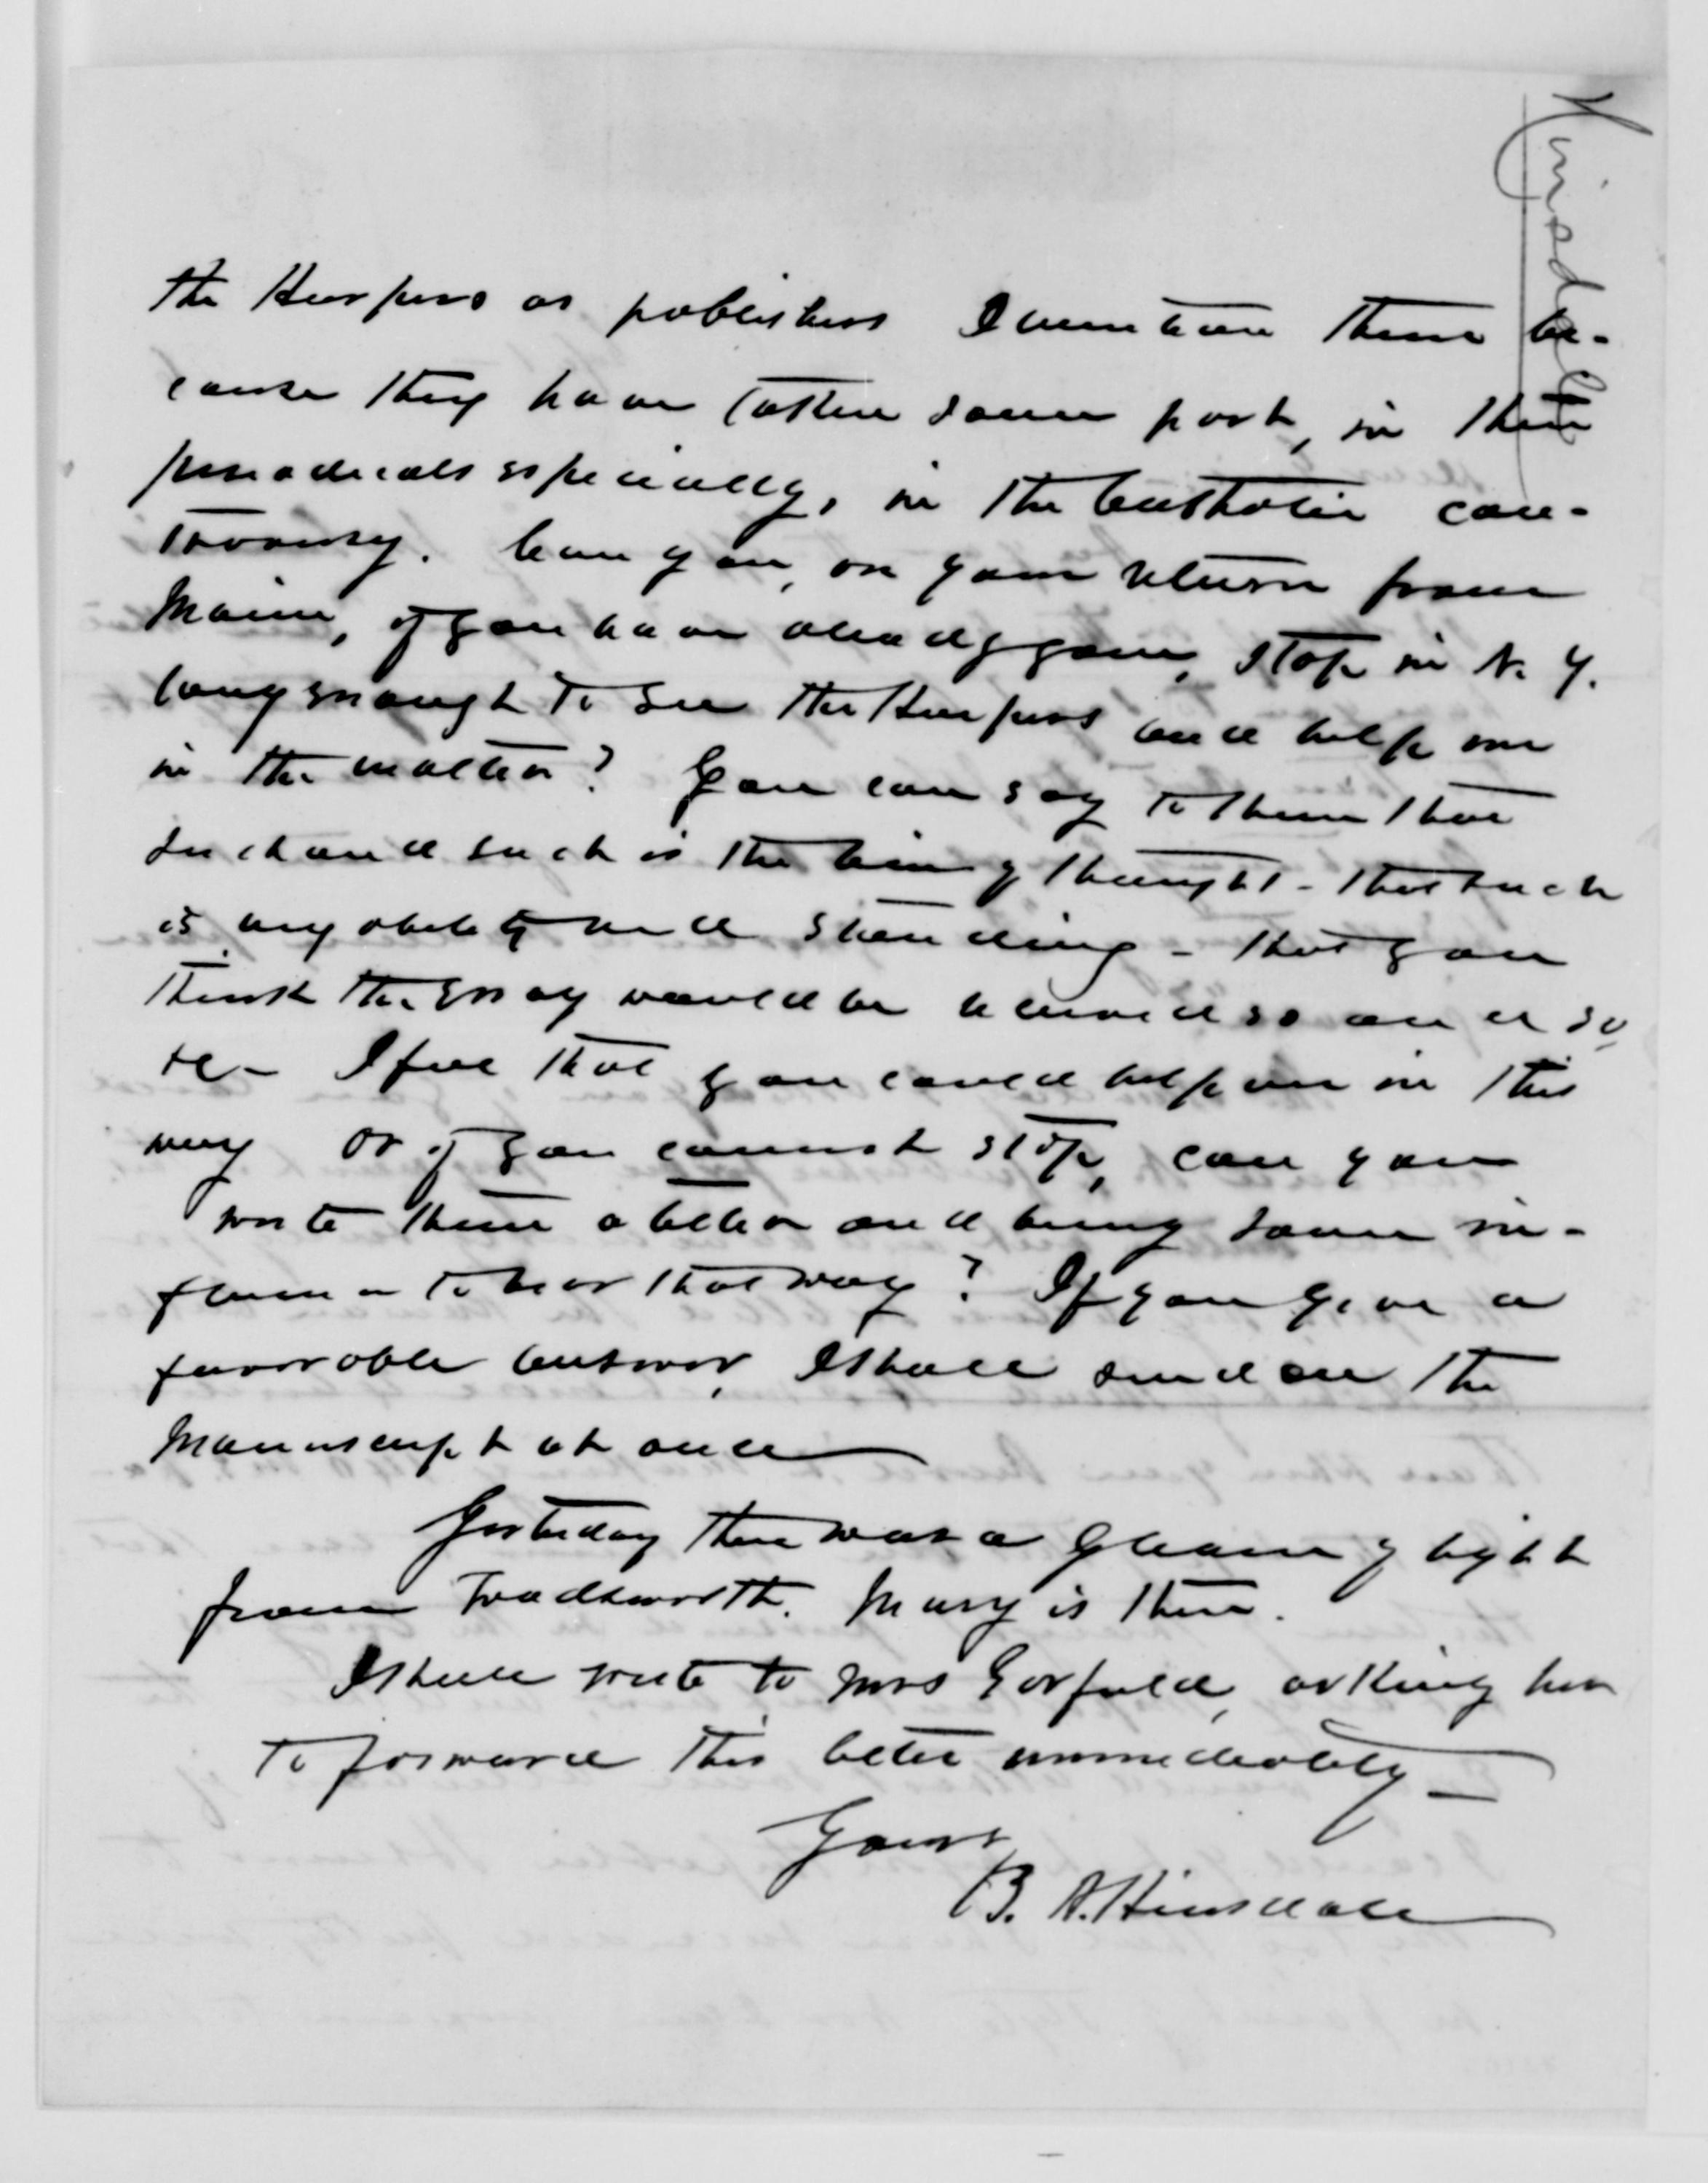 Hinsdale
the Harpers as publishers I mention them be-
cause they have taken some part, in their
periodicals especially, in the Catholic con-
troversy. Can you, on your return from
Maine, if you have already gone, stop in N. Y.
long enough to see the Harpers and help me
in the matter? You can say to them that
such and such is the line of thought - that such
is my ability and standing - that you
think the Essay would be received so and so
&c - I feel that you could help me in this
way Or if you cannot stop, can you
write them a letter and bring some in-
fluence to bear that way? If you give a
favorable answer, I shall send on the
Manuscript at once
Yesterday there was a gleam of light
from Wadsworth. Mary is there.
I shall write to Mrs Garfield, asking her
to forward this letter immediately -
Yours
B. A. Hinsdale